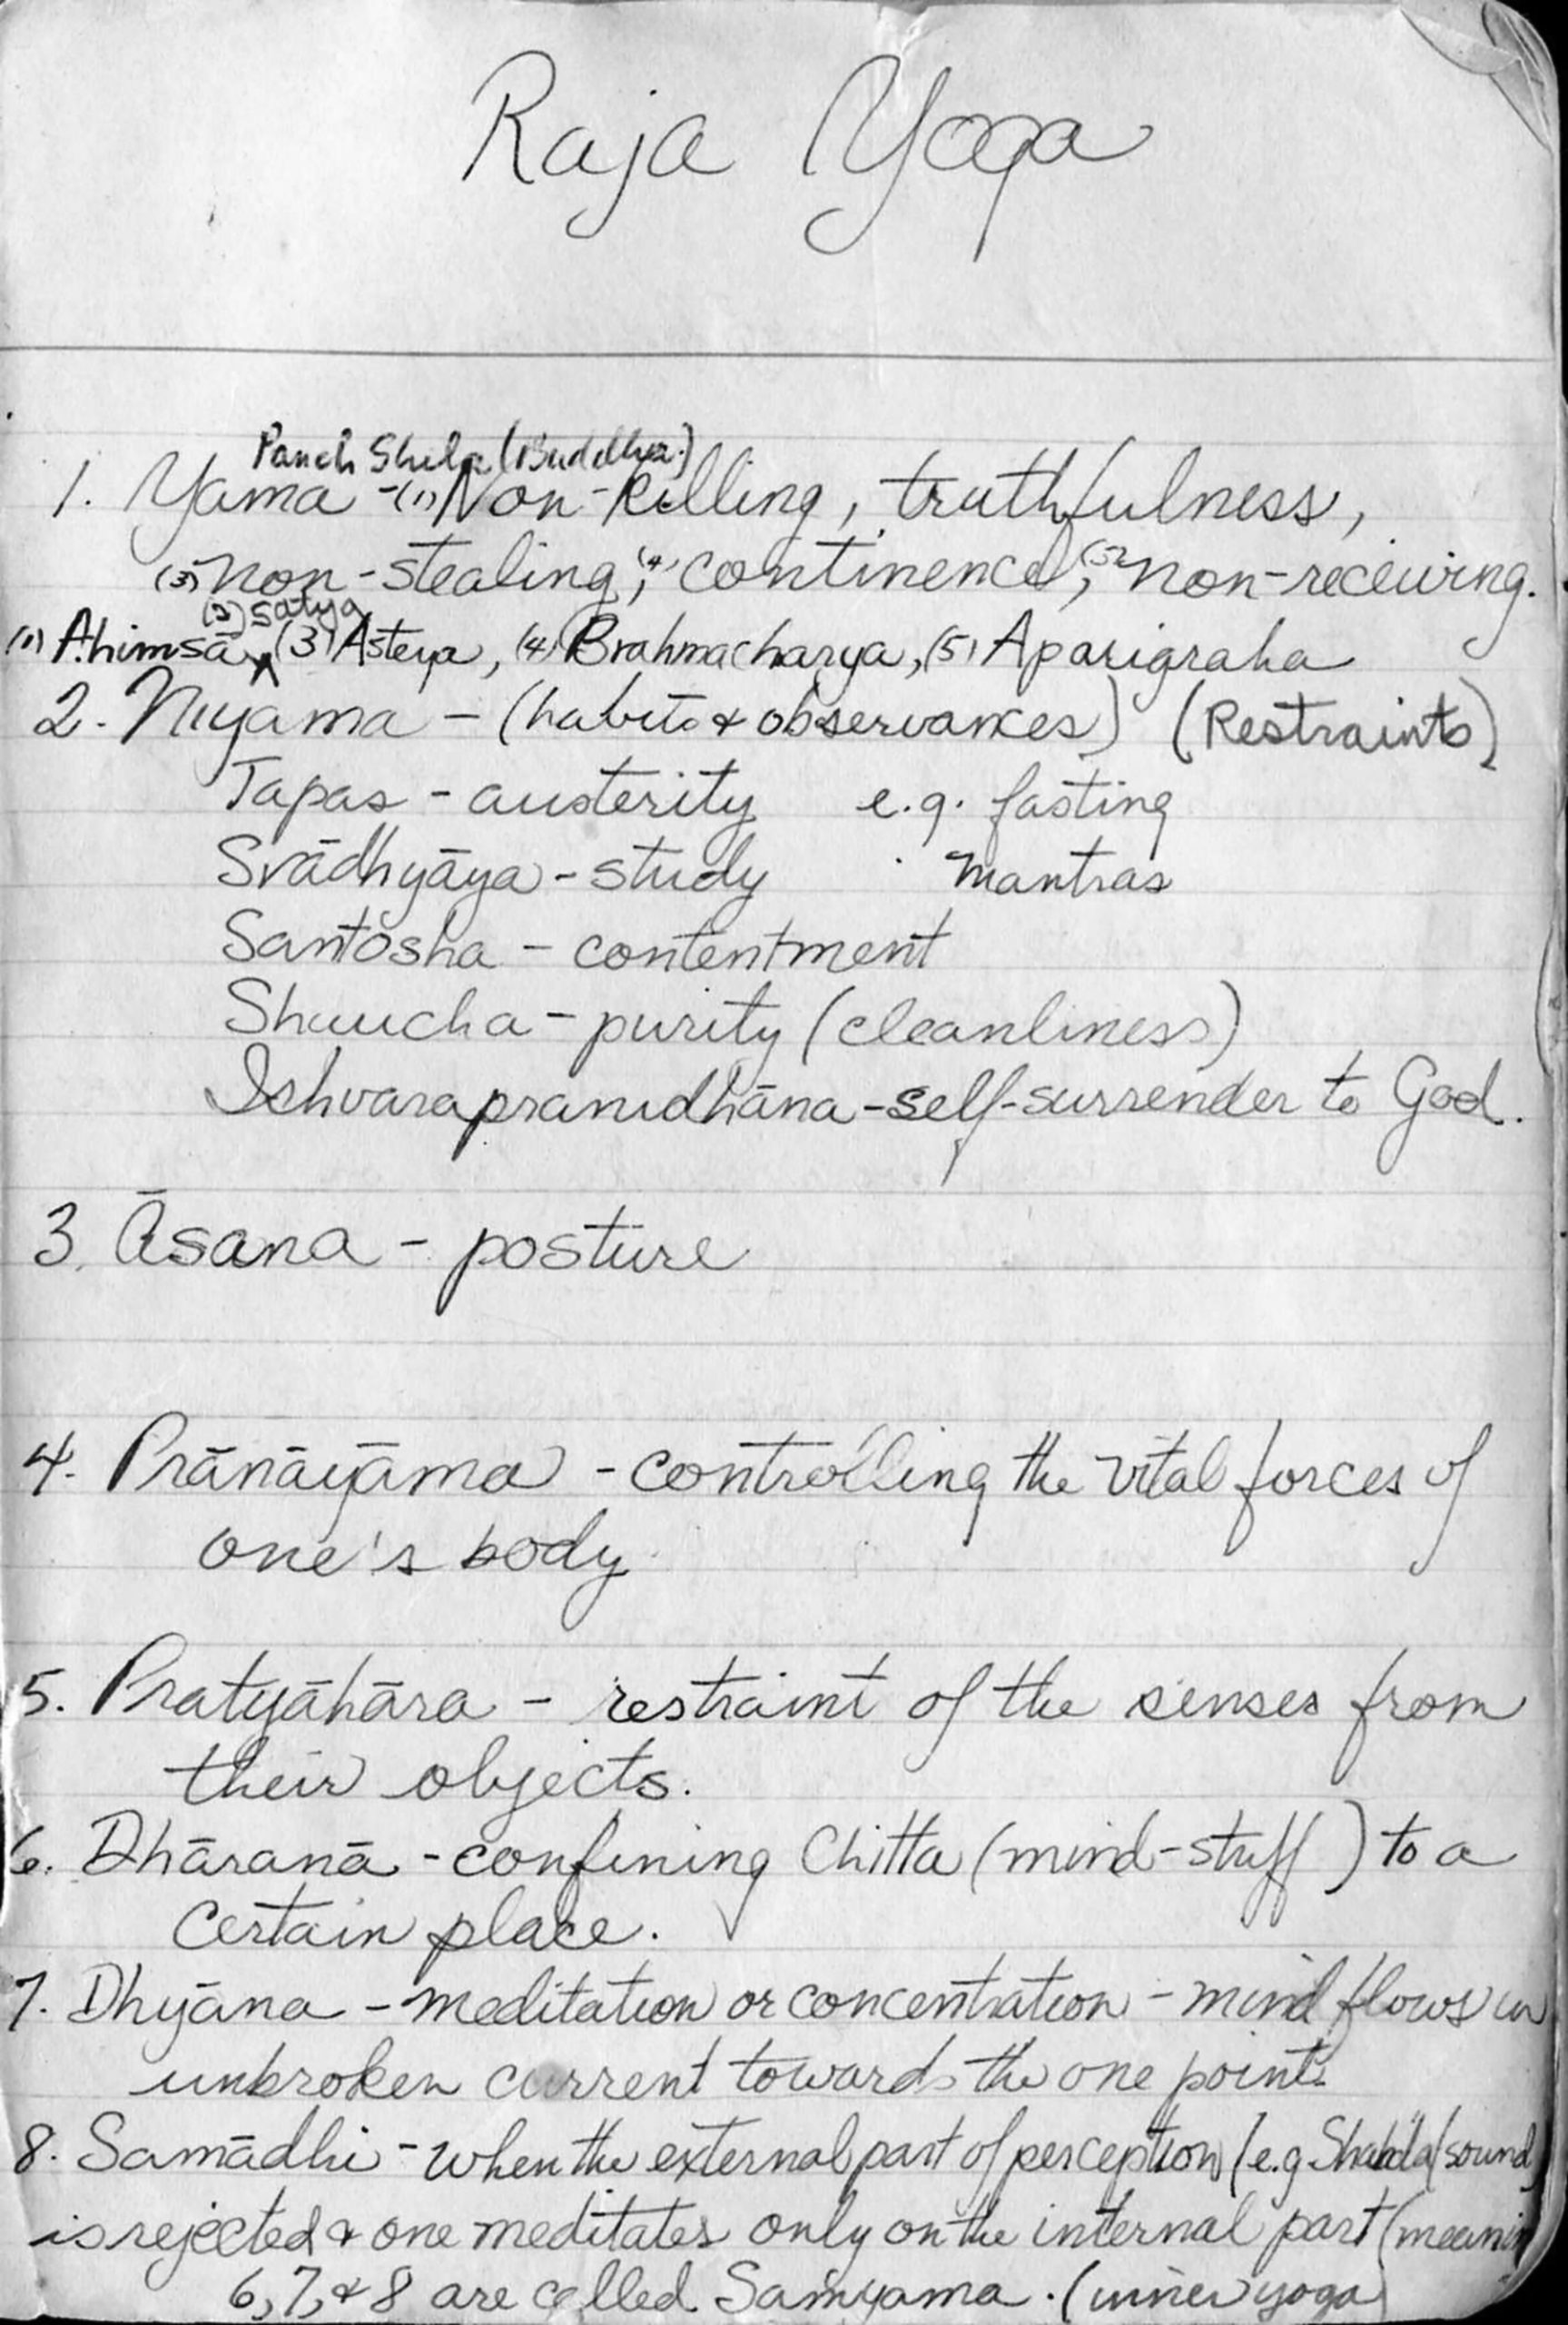 Raja Yoga
Panch Shila (Buddha.)
1. Yama - (1) Non-killing, truthfulness,
(3) non-stealing, (4) continence, (5) non-receiving.
(2) Satya
(1) Ahimsā ^ (3) Asteya, (4) Brahmacharya, (5) Aparigraha
2. Niyama - (habits & observances) (Restraints)
Tapas - austerity e.g. fasting
Svādhyāya - study mantras
Santosha - contentment
Shaucha - purity (cleanliness)
Ishvarapranidhāna - self-surrender to God.
3. Āsana - posture
4. Prānāyāma - controlling the vital forces of
one's body
5. Pratyāhāra - restraint of the senses from
their objects.
6. Dhāranā - confining Chitta (mind-stuff) to a
certain place.
7. Dhyāna - meditation or concentration - mind flows in
unbroken current towards the one point.
8. Samādhi - when the external part of perception (e.g. Shabda (sound)
is rejected & one meditates only on the internal part (meanin
6, 7, & 8 are called Samyama. (inner yoga)